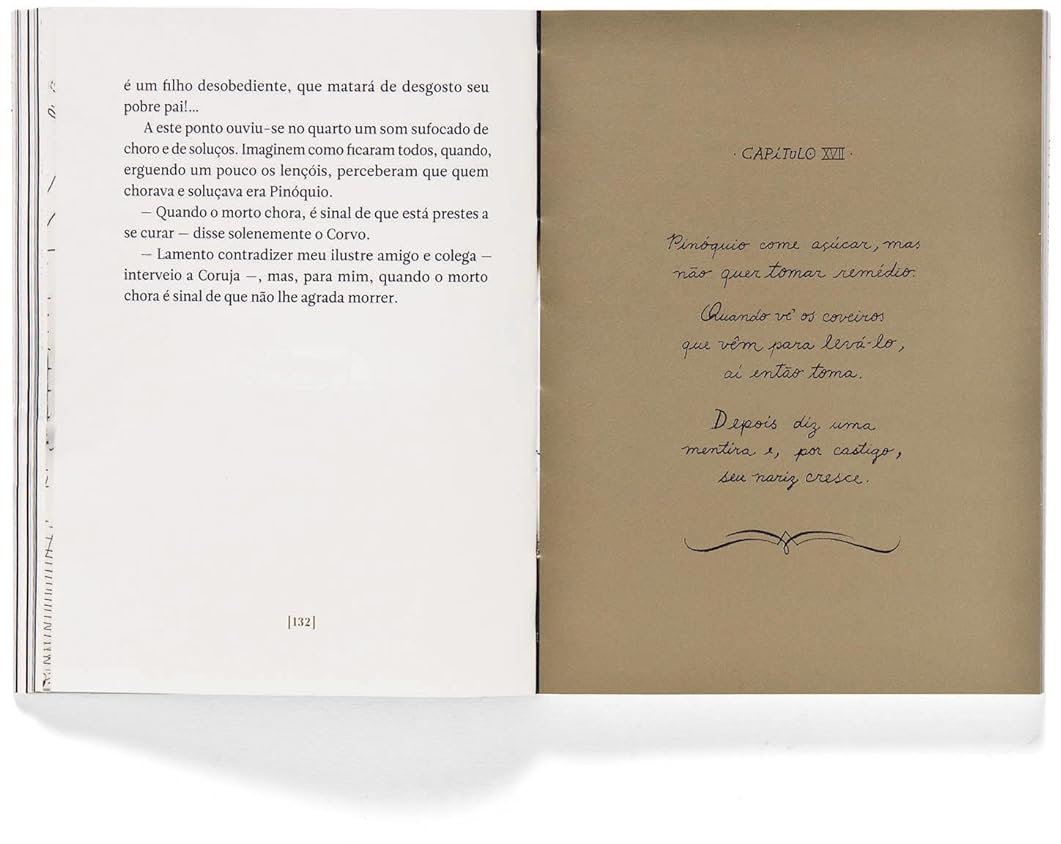 é um filho desobediente, que matará de desgosto seu
pobre pai!...
A este ponto ouviu-se no quarto um som sufocado de
choro e de soluços. Imaginem como ficaram todos, quando,
erguendo um pouco os lençóis, perceberam que quem
chorava e soluçava era Pinóquio.
— Quando o morto chora, é sinal de que está prestes a
se curar — disse solenemente o Corvo.
— Lamento contradizer meu ilustre amigo e colega —
interveio a Coruja —, mas, para mim, quando o morto
chora é sinal de que não lhe agrada morrer.
[132]
· CAPÍTULO XVII ·
Pinóquio come açúcar, mas
não quer tomar remédio.
Quando vê os coveiros
que vêm para levá-lo,
aí então toma.
Depois diz uma
mentira e, por castigo,
seu nariz cresce.